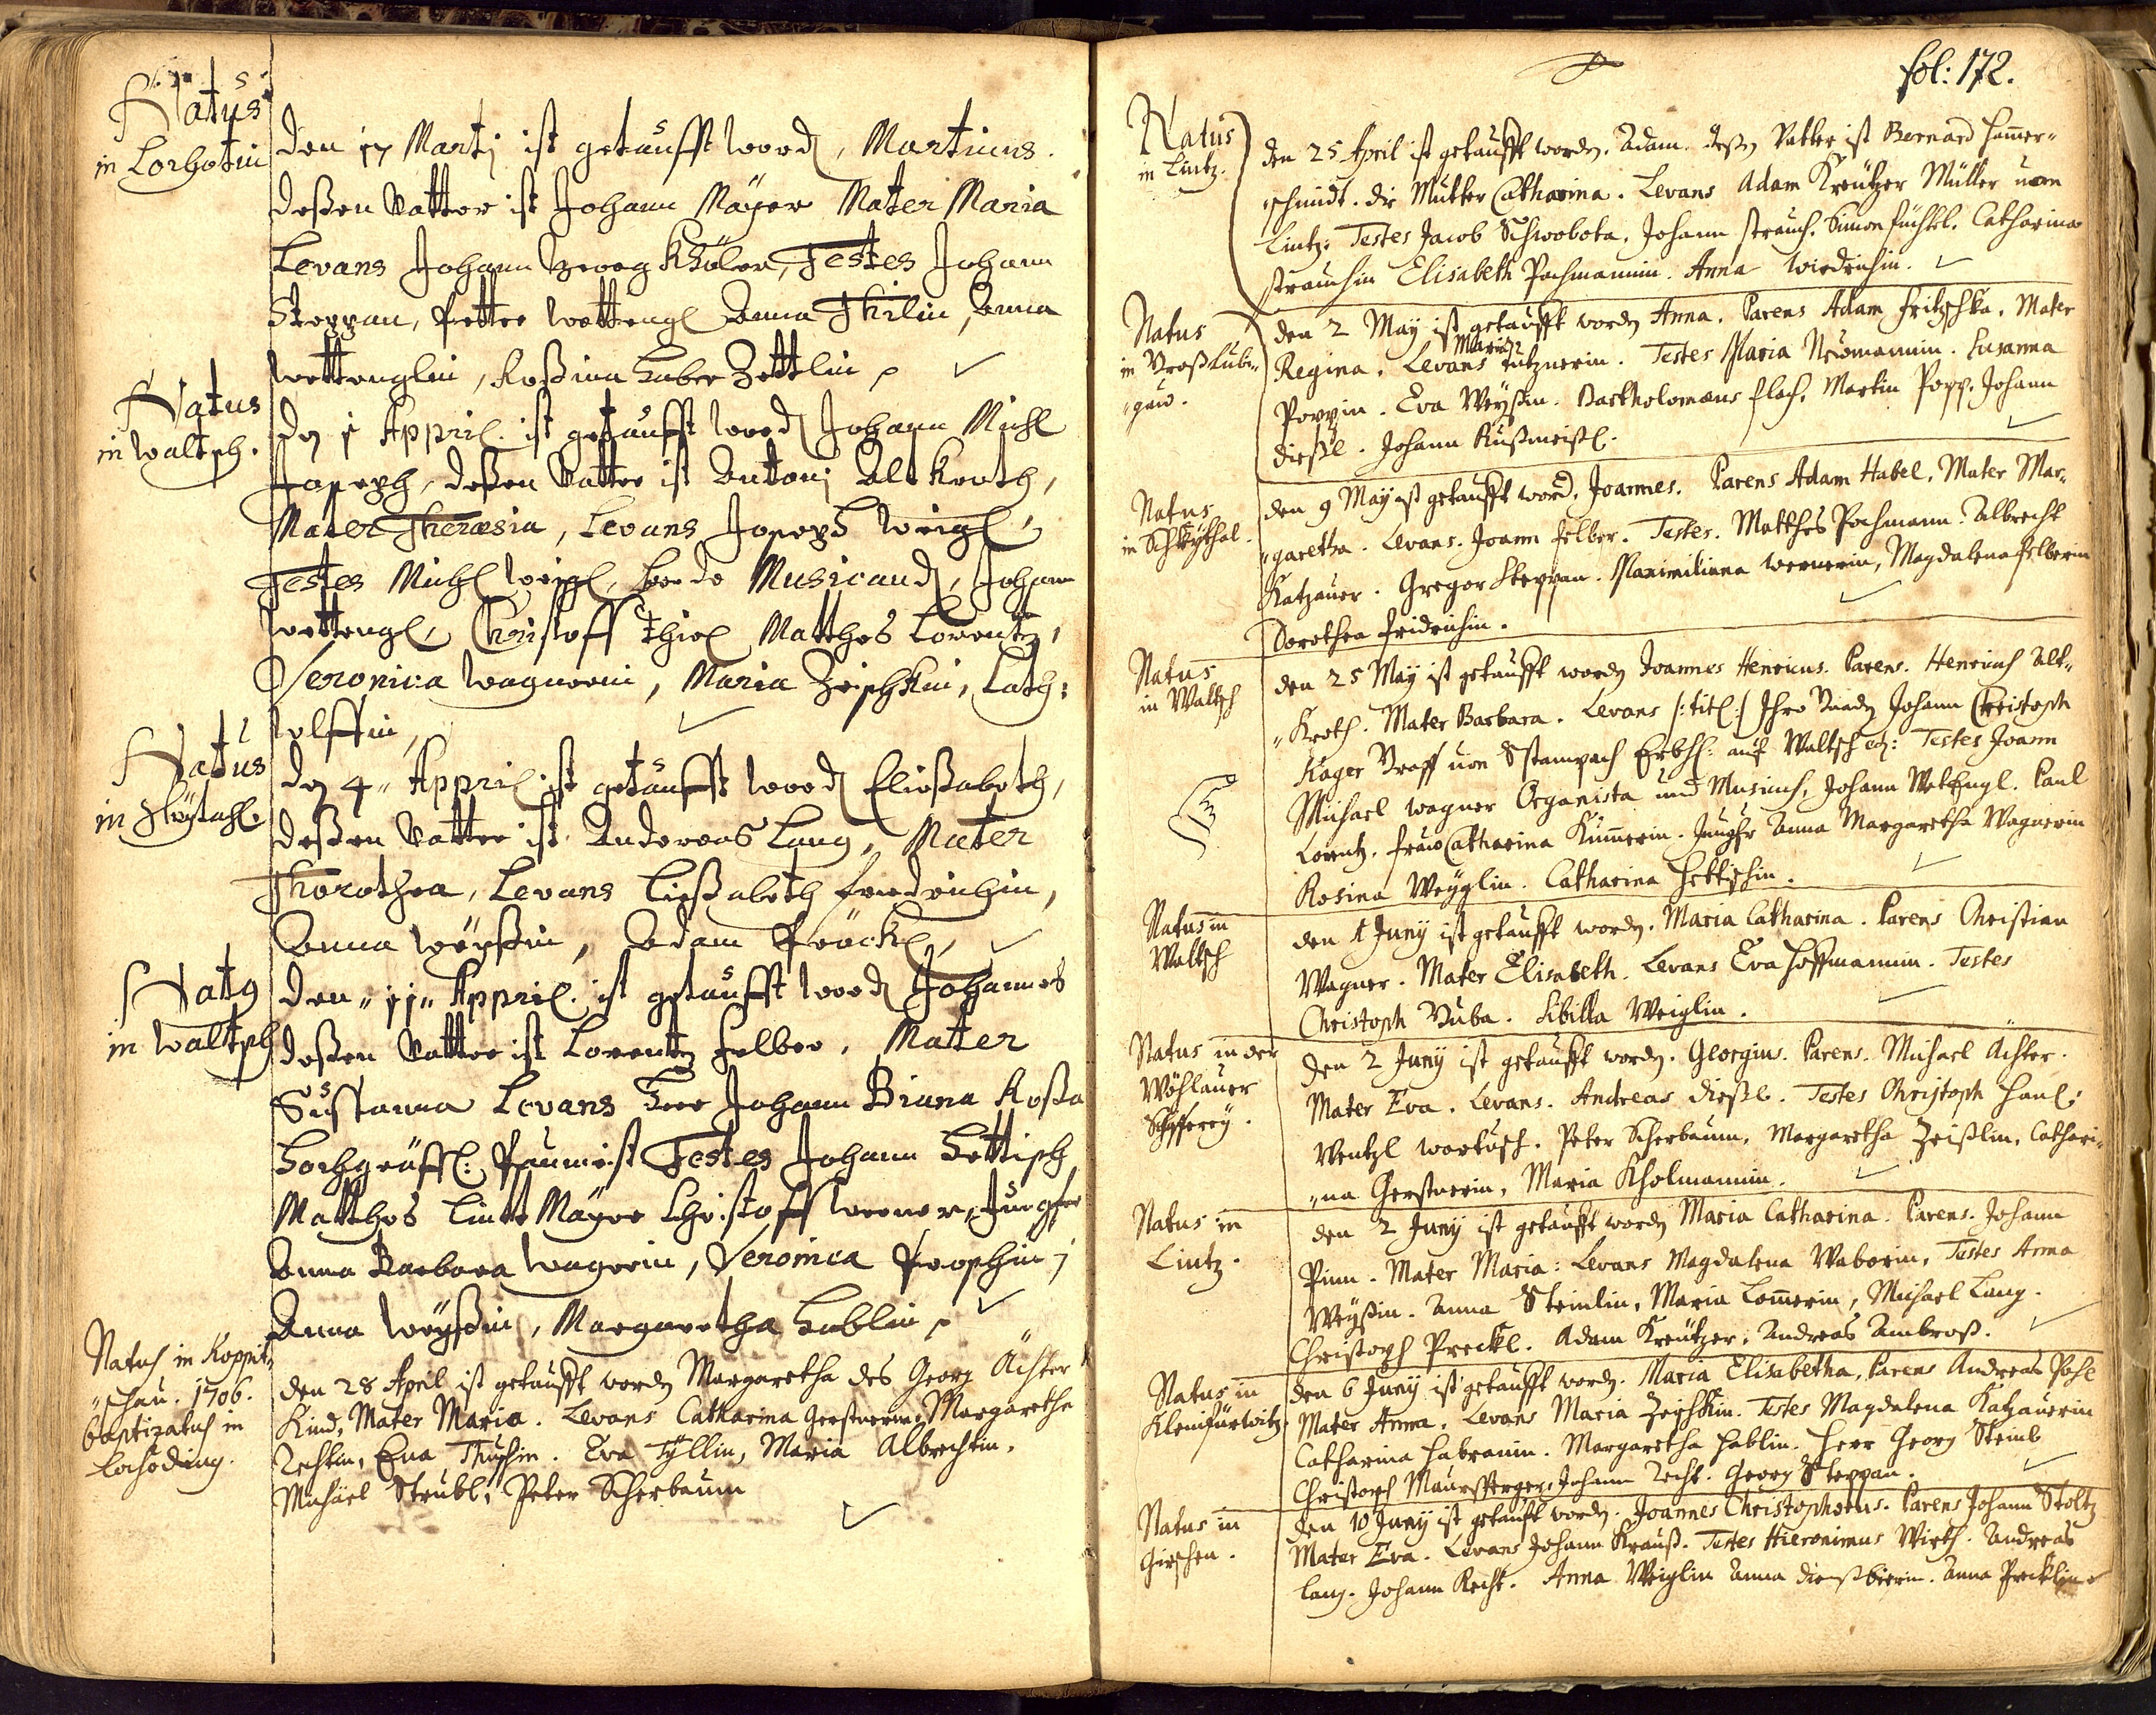 Natus
in Lochotin
den 17 Martij ist getaufft word, Martinus.
deßen Vatter ist Johann Mäyer Mater Maria
Levans Johann Georg Khöler, Testes Johann
Steppan, Petter Wettengl Anna Thilin, Anna
Wettenglin, Roßina Huber Zettlin
Natus
in Waltsch.
den 1 Appril ist getaufft word Johann Michl
Joseph, deßen Vatter ist Antonj Alt Kroth,
Mater Theræsia, Levans Joseph Weigl,
Testes Michl Weigl, beede Musicand, Johann
Wettengl, Christoff Thiel Matthes Lorentz,
Veronica Wagnerin, Maria Zeischkin, Cath:
Wolffin,
Natus
in
den 4 Appril ist getaufft word Elißabeth,
deßen Vatter ist Andereas Lang, Mater
Thorothea, Levans Ließabeth Friedrichin,
Anna Weyßin, Adam Pröckl,
Natg
in Waltsch
den 11 Appril ist getaufft word Johannes
deßen Vatter ist Lorentz Felber, Mater
Sustanna Levans Herr Johann Biana Roßa
Hochgräffl: Testes Johann Hettisch
Matthes Linte Mäyer Christoff Werner, Jungfer
Anna Barbara Wagnerin, Veronica
Anna Weyßin, Margaretha Hablin
Natus in Koppit-
"schau. 1706.
baptizatus in
den 28 April ist getaufft worden Margaretha des Georg Ächter
Kind, Mater Maria. Levans Catharina Gerstnerin, Margaretha
Eva Eva Tyllin, Maria Albrechtin.
Michäel Strübl, Peter Scherbaum
fol: 172.
Natus
in Lintz.
den 25 April ist getaufft worden. Adam. deßen Vatter ist Bernard Hamer-
"schmidt. die Mutter Catharina. Levans Adam Kreützer Müller von
Lintz. Testes Jacob Schwobota, Johann Strauch. Simon Füchtl. Catharina
Strauchin Elisabeth Pochmannin. Anna Wiedrichin.
Natus
in Groß Lubi-
"gau.
den 2 May ist getaufft worden Anna. Parens Adam Fritschka, Mater
Maria
Regina. Levans Lutznerin. Testes Maria Neümannin. Susanna
Poppin. Eva Weyßin. Bartholomæus Flach, Martin Popp. Johann
Dießl. Johann Rußmeißl.
Natus
in
den 9 May ist getaufft word. Joannes. Parens Adam Habel. Mater Mar-
"garetha. Levans. Joann Felber. Testes. Matthes Pochmann. Albrecht
Katzauer. Gregor Steppan. Maximiliana Wernerin, Magdalena Felberin
Dorothea Fridrichin.
Natus
in Waltsch
den 25 May ist getaufft worden Joannes Henricus. Parens. Henrich Alt-
"Kroth. Mater Barbara. Levans /:titl:/ Ihro Gnaden Johann Christoph
Kager Graff von Stampach Erbhl: auf Waltsch Testes Joann
Michael Wagner Organista und Musicus, Johann Wettengl. Paul
Lorentz. Frau Catharina Kumerin. Jungfr Anna Margaretha Wagnerin
Rosina Weyglin. Catharina Hettischin.
Natus in
Waltsch
den 1 Juny ist getaufft worden. Maria Catharina. Parens Christian
Wagner. Mater Elisabeth. Levans Eva Hoffmannin. Testes
Christoph Buba. Sibilla Weiglin.
Natus in der
Wöhlauer
Schäfferey.
den 2 Juny ist getaufft worden. Georgius. Parens. Michael Ächter.
Mater Eva. Levans. Andreas Dießl. Testes Christoph Hanl.
Wentzl Peter Scherbaum, Margaretha Zeißlin, Cathari-
"na Gerstnerin, Maria Kholmannin.
Natus in
Lintz.
den 2 Juny ist getaufft worden Maria Catharina. Parens. Johann
Pinn. Mater Maria: Levans Magdalena Waborin, Testes Anna
Weyßin. Anna Steinlin, Maria Lomerin, Michael Lang.
Christoph Preckl. Adam Kreützer. Andreas Ambroß.
Natus in
Kleinfürwitz
den 6 Juny ist getaufft worden. Maria Elisabetha, Parens Andreas Pohl
Mater Anna. Levans Maria Zeyhkin. Testes Magdalena Katzauerin
Catharina Habranin. Margaretha Hablin. Herr Georg Steinl
Christoph Johann Recht. Georg Steppan.
Natus in
Girschen.
den 10 Juny ist getaufft worden. Joannes Christophorus. Parens Johann Stoltz
Mater Eva. Levans Johann Krauß. Testes Hieronimus Wirth. Andreas
Lang. Johann Recht. Anna Weiglin Anna Dienßbierin. Anna Precklin